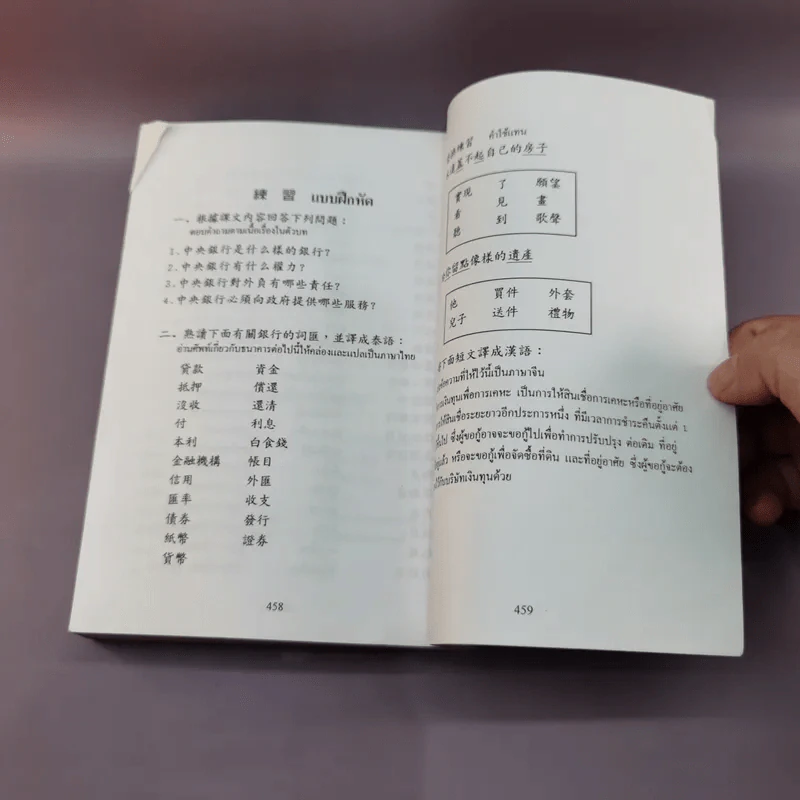 練 習 แบบฝึกหัด
一、根據課文內容回答下列問題：
ตอบคำถามตามเนื้อเรื่องในตัวบท
1.中央銀行是什么樣的銀行?
2.中央銀行有什么權力?
3.中央銀行對外負有哪些責任?
4.中央銀行必須向政府提供哪些服務?
二、熟讀下面有關銀行的詞匯，並譯成泰語：
อ่านศัพท์เกี่ยวกับธนาคารต่อไปนี้ให้คล่องและแปลเป็นภาษาไทย
貸款 資金
抵押 償還
沒收 還清
付 利息
本利 白食錢
金融機構 帳目
信用 外匯
匯率 收支
債券 發行
紙幣 證券
貨幣
458
練習 คำใช้แทน
蓋不起自己的房子
實現 了 願望
看 見 畫
聽 到 歌聲
留點像樣的遺產
他 買件 外套
兒子 送件 禮物
下面短文譯成漢語：
ความที่ให้ไว้นี้เป็นภาษาจีน
เงินทุนเพื่อการเคหะ เป็นการให้สินเชื่อการเคหะหรือที่อยู่อาศัย
ให้สินเชื่อระยะยาวอีกประการหนึ่ง ที่มีเวลาการชำระคืนตั้งแต่
ขึ้นไป ซึ่งผู้ขอกู้อาจจะขอกู้ไปเพื่อทำการปรับปรุง ต่อเติม ที่อยู่
แล้ว หรือจะขอกู้เพื่อจัดซื้อที่ดิน และที่อยู่อาศัย ซึ่งผู้ขอกู้จะต้อง
บริษัทเงินทุนด้วย
459